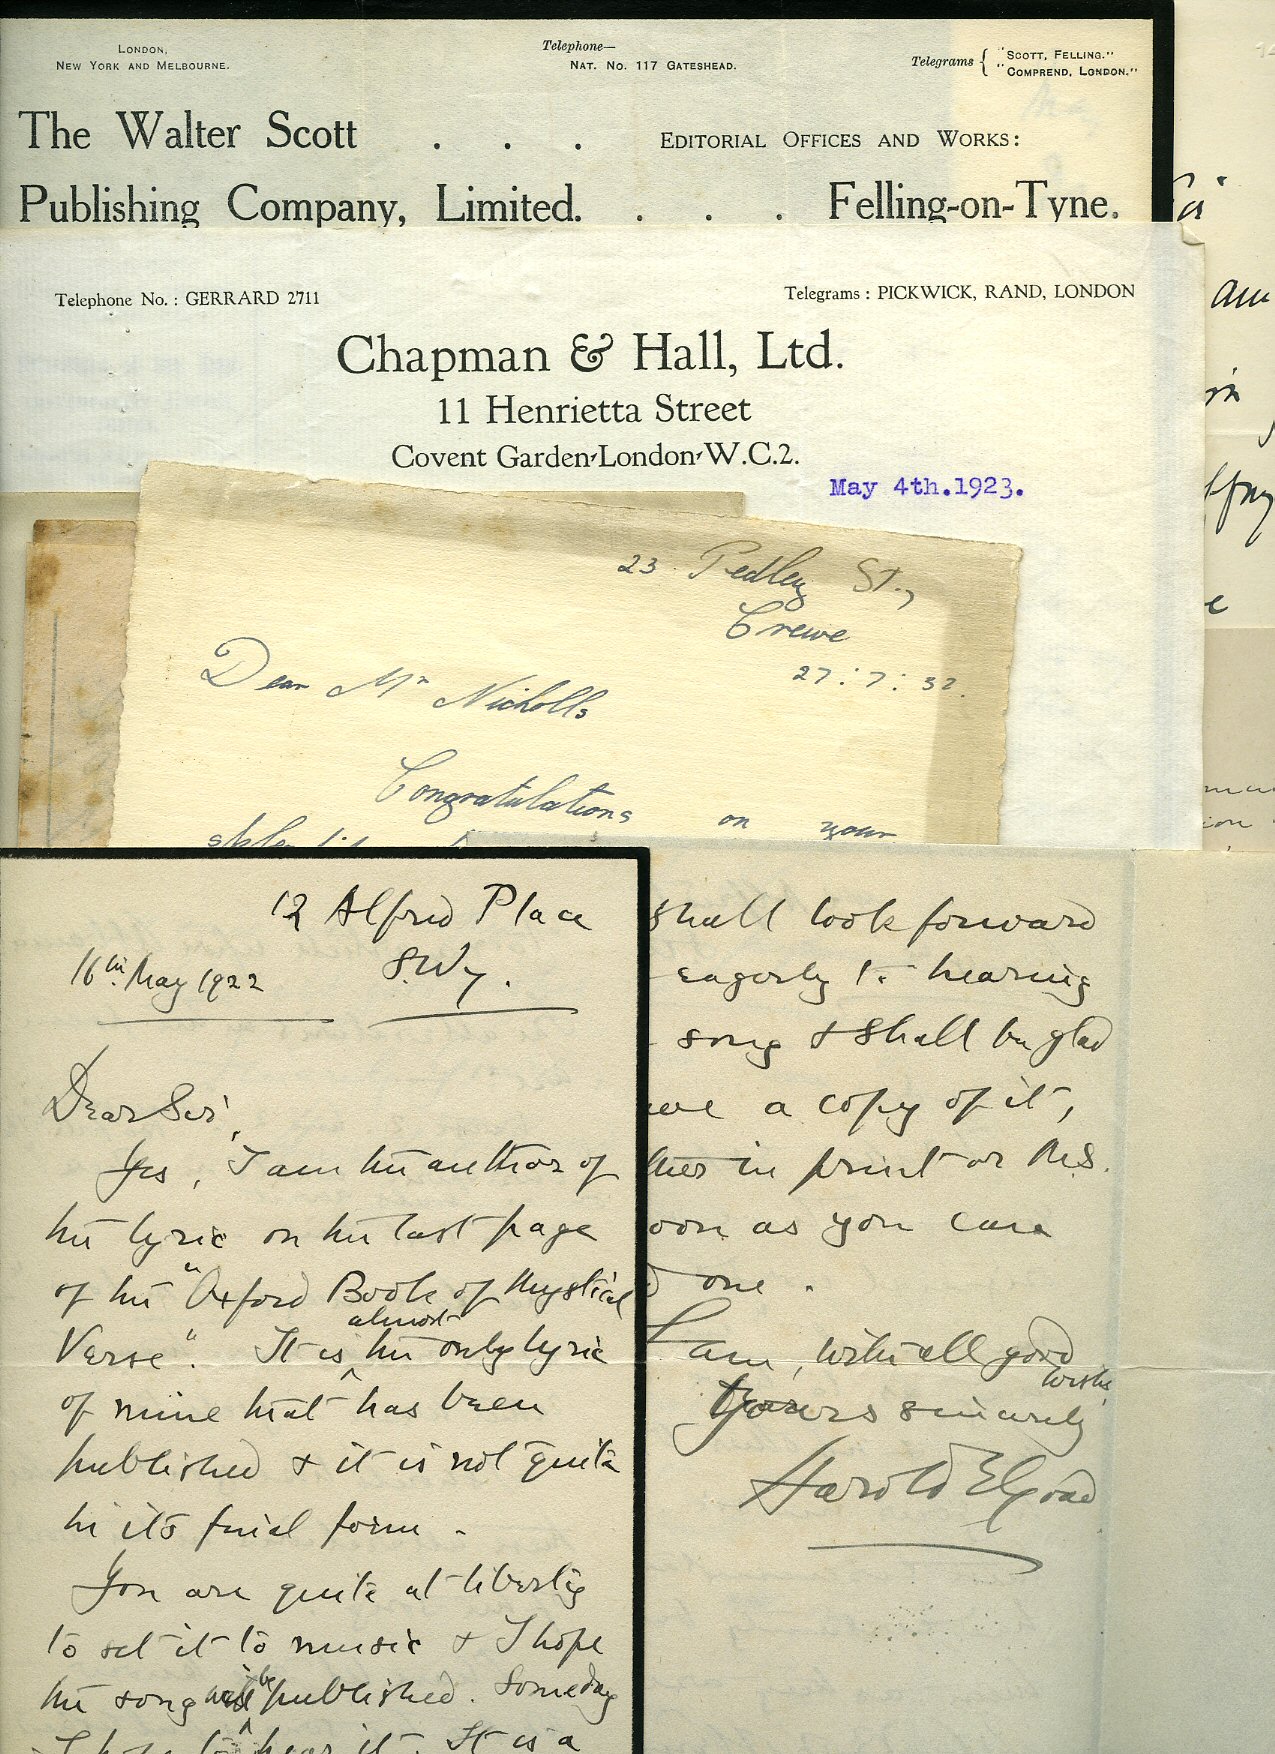 London,
New York and Melbourne.
Telephone—
Nat. No. 117 Gateshead.
Telegrams { "Scott, Felling."
"Comprend, London."
The Walter Scott . . .
Publishing Company, Limited. . . .
Editorial Offices and Works:
Felling-on-Tyne.
Telephone No. : GERRARD 2711
Telegrams : PICKWICK, RAND, LONDON
Chapman & Hall, Ltd.
11 Henrietta Street
Covent Garden-London-W.C.2.
May 4th.1923.
23 Pedley St.,
Crewe
27:7:32.
Dear Mr Nicholls
Congratulations on your
am
in
12 Alfred Place
S.W.7.
16th May 1922
Dear Sir,
Yes, I am the author of
the lyric on the last page
of the "Oxford Book of Mystical
Verse". It is almost the only lyric
of mine that has been
published & it is not quite
in its final form.
You are quite at liberty
to set it to music & I hope
the song will be published. Someday
I hope to hear it. It is a
shall look forward
eagerly to hearing
song & shall be glad
a copy of it,
in print or MS.
as you care
one.
I am, with all good
wishes
Yours sincerely
Harold E Goad